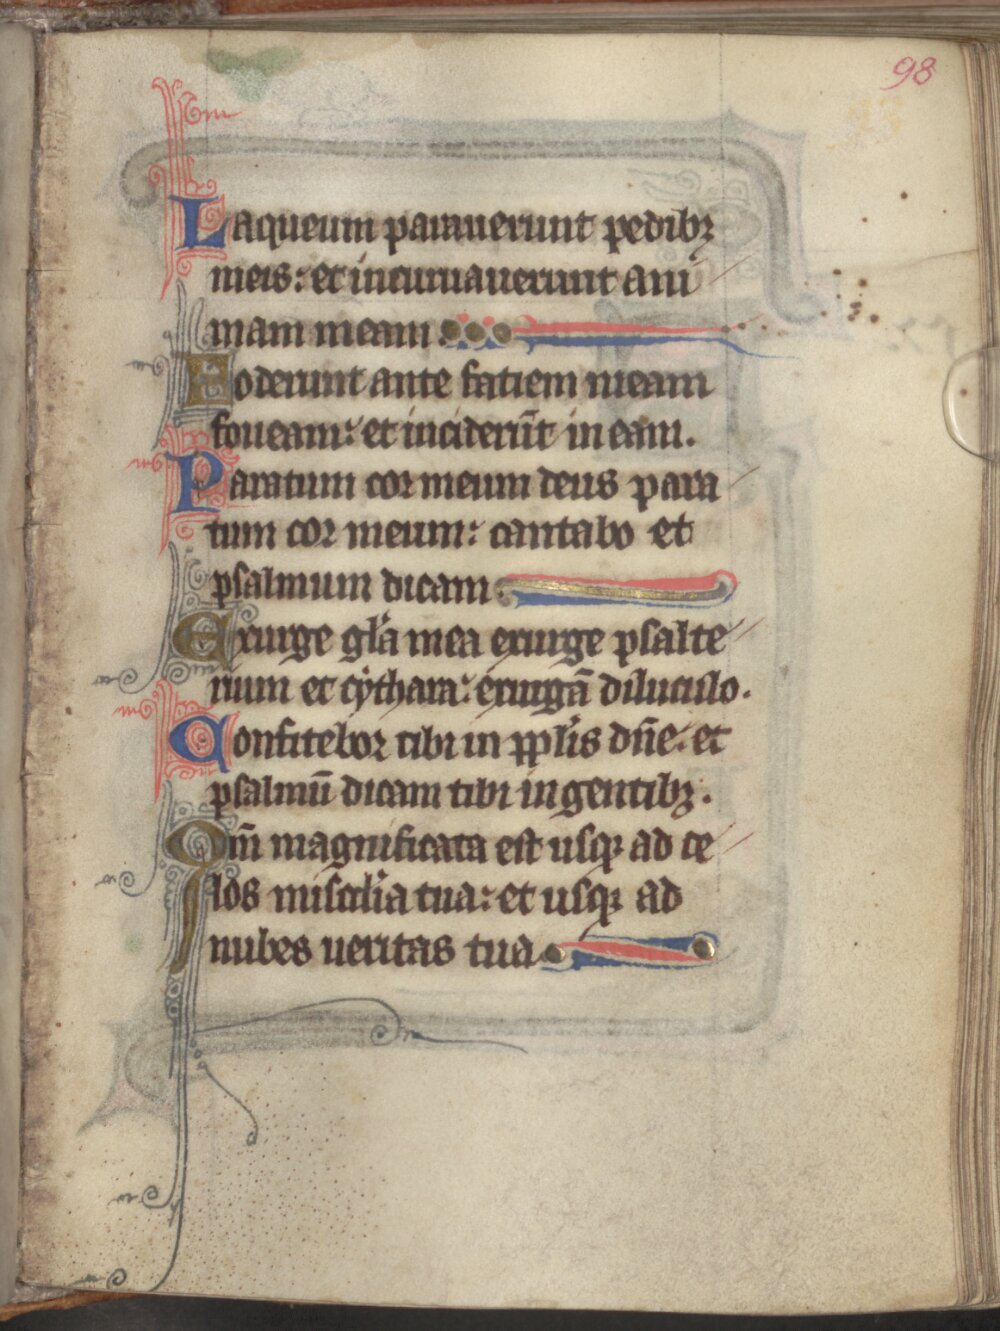 98
Laqueum parauerunt pedibꝫ
meis: et incuruauerunt ani
mam meam
Foderunt ante faciem meam
foueam: et inciderūt in eam.
Paratum cor meum deus para
tum cor meum: cantabo et
psalmum dicam
Exurge gl̄a mea exurge psalte
rium et cythara: exurgā diluculo.
Confitebor tibi in pp̄lis dn̄e: et
psalmū dicam tibi in gentibꝫ.
Qm̄ magnificata est usqꝫ ad ce
los misc̄dia tua: et usqꝫ ad
nubes ueritas tua